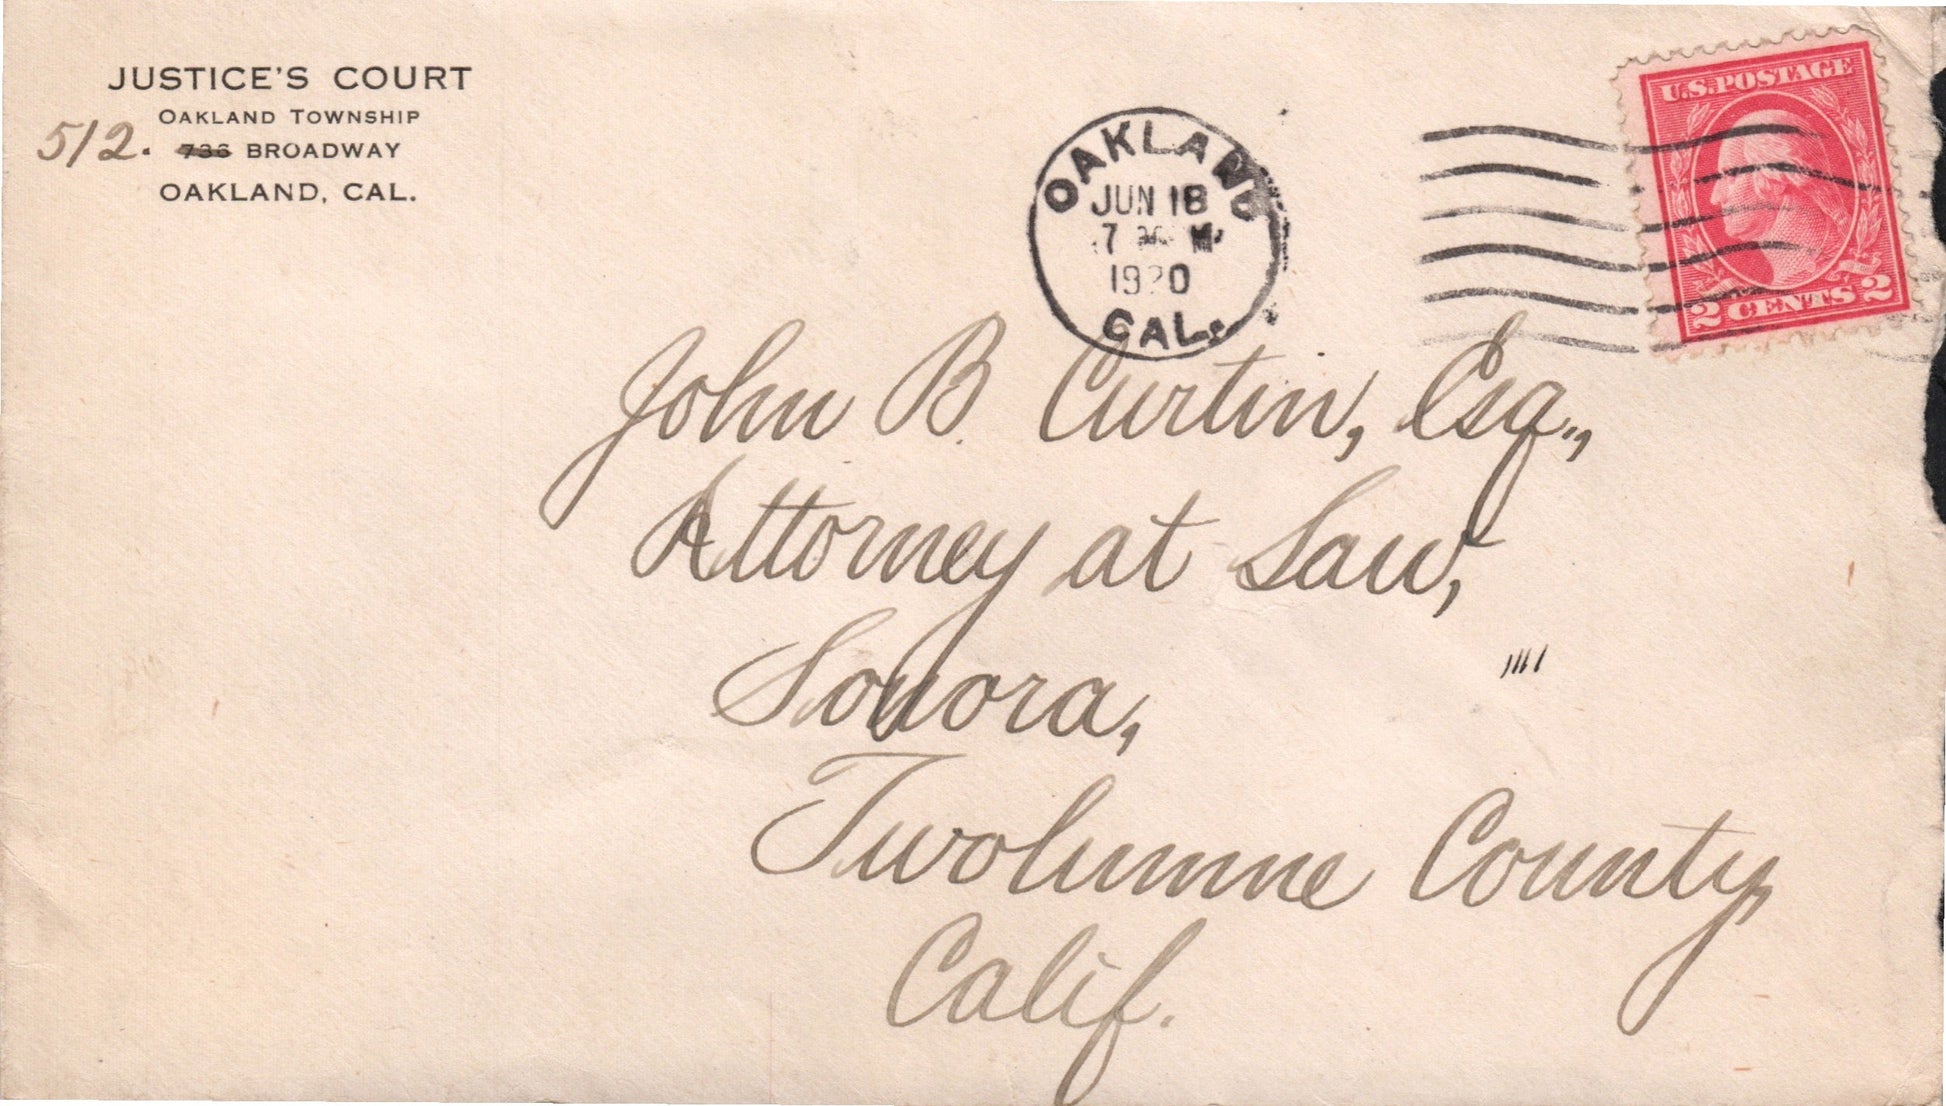 JUSTICE'S COURT
OAKLAND TOWNSHIP
512. 736 BROADWAY
OAKLAND, CAL.
OAKLAND
JUN 18
7 M
1920
CAL.
U.S. POSTAGE
2 CENTS 2
John B. Curtin, Esq.,
Attorney at Law,
Sonora,
Twolumne County,
Calif.